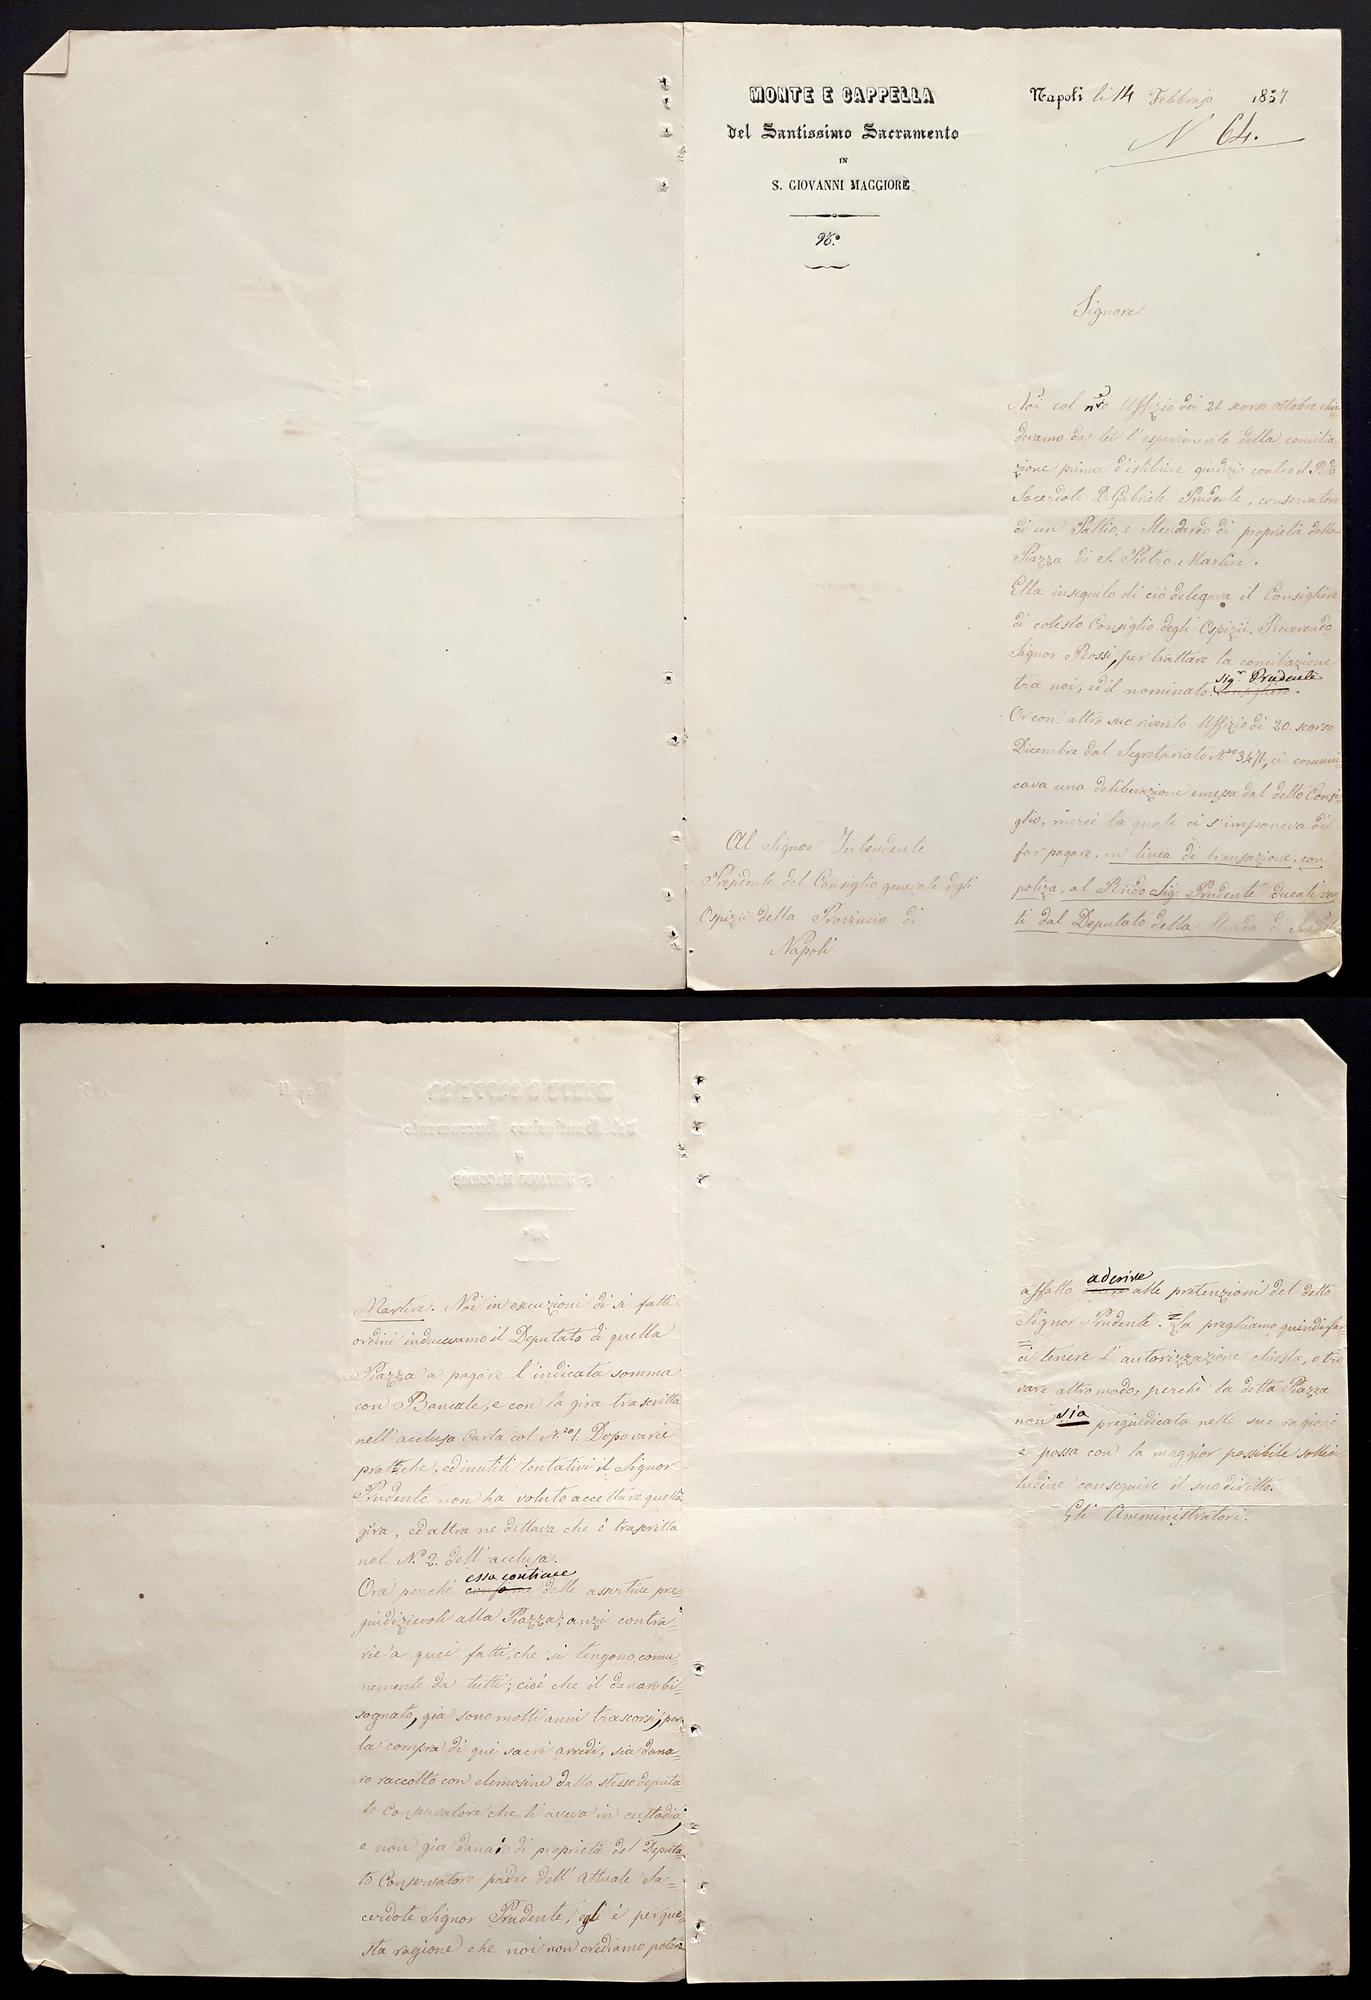 MONTE E CAPPELLA
del Santissimo Sacramento
IN
S. GIOVANNI MAGGIORE
Napoli li 14 Febbrajo 1857
N 64.
Signore
Noi col nro Uffizio dei 21 scorso ottobre chie-
devamo da lei l'esperimento della concilia
zione prima d'istituire giudizio contro il R.do
Sacerdote D. Gabriele Prudente, conservatore
di un Pallio, e Stendardo di proprietà della
Piazza di S. Pietro Martire.
Ella inseguito di ciò delegava il Consigliere
di cotesto Consiglio degli Ospizii, Reverendo
Signor Rossi, per trattare la conciliazione
tra noi, ed il nominato sigr. Prudente.
Or con altro suo riverito Uffizio di 20 scorso
Dicembre dal Segretariato N.ro 3471, ci comuni-
cava una deliberazione emessa dal detto Consi-
glio, mercè la quale ci s'imponeva di
far pagare, in linea di transazione, con
poliza, al R.ndo Sig: Prudente ducati ven
ti dal Deputato della Strada di S. Pietro
Al Signor Intendente
Presidente del Consiglio generale degli
Ospizii della Provincia di
Napoli
Martire. Noi in esecuzioni di si fatti
ordini inducevamo il Deputato di quella
Piazza a pagare l'indicata somma
con Bancale, e con la gira trascritta
nell'acclusa Carta col N.ro 1. Dopo varie
prattiche, ed inutili tentativi il Signor
Prudente non ha voluto accettare quella
gira, ed altra ne dettava che è trascritta
nel N.o 2. dell'acclusa.
Ora perchè essa contiene delle assertive pre-
giudizievoli alla Piazza; anzi contra-
rie a quei fatti, che si tengono comu-
nemente da tutti; cioè che il danaro bi-
sognato, già sono molti anni trascorsi, per
la compra di que' sacri arredi, sia dana-
ro raccolto con elemosine dallo stesso deputa-
to Conservatore che li aveva in custodia,
e non già danai di proprietà del Deputa-
to Conservatore padre dell'Attuale Sa-
cerdote Signor Prudente, egli è per que-
sta ragione che noi non crediamo poter
affatto aderire alle pretenzioni del detto
Signor Prudente. La preghiamo quindi far
ci tenere l'autorizzazione chiesta, o tro
vare altro modo, perchè la detta Piazza
non sia pregiudicata nelle sue ragioni
e possa con la maggior possibile solleci
tudine conseguire il suo diritto.
Gli Amministratori.